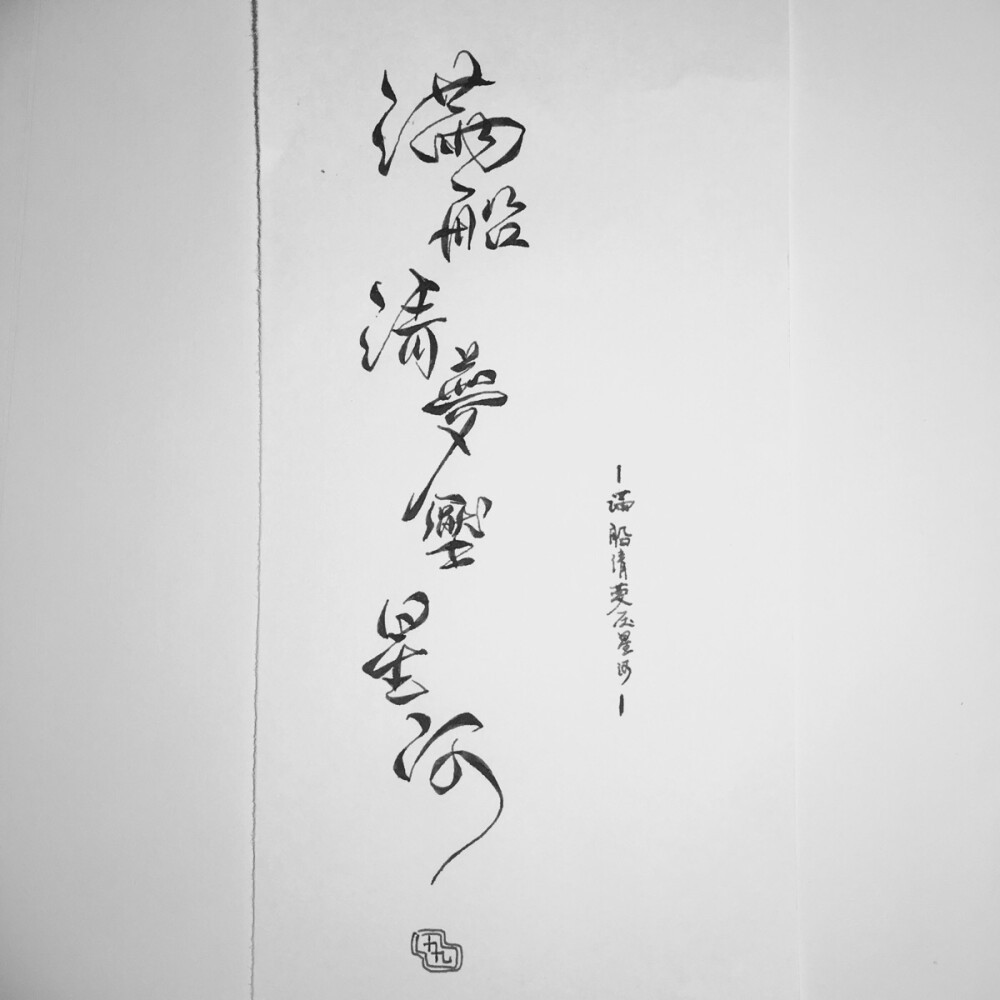 滿船清夢壓星河
满船清夢压星河
九九